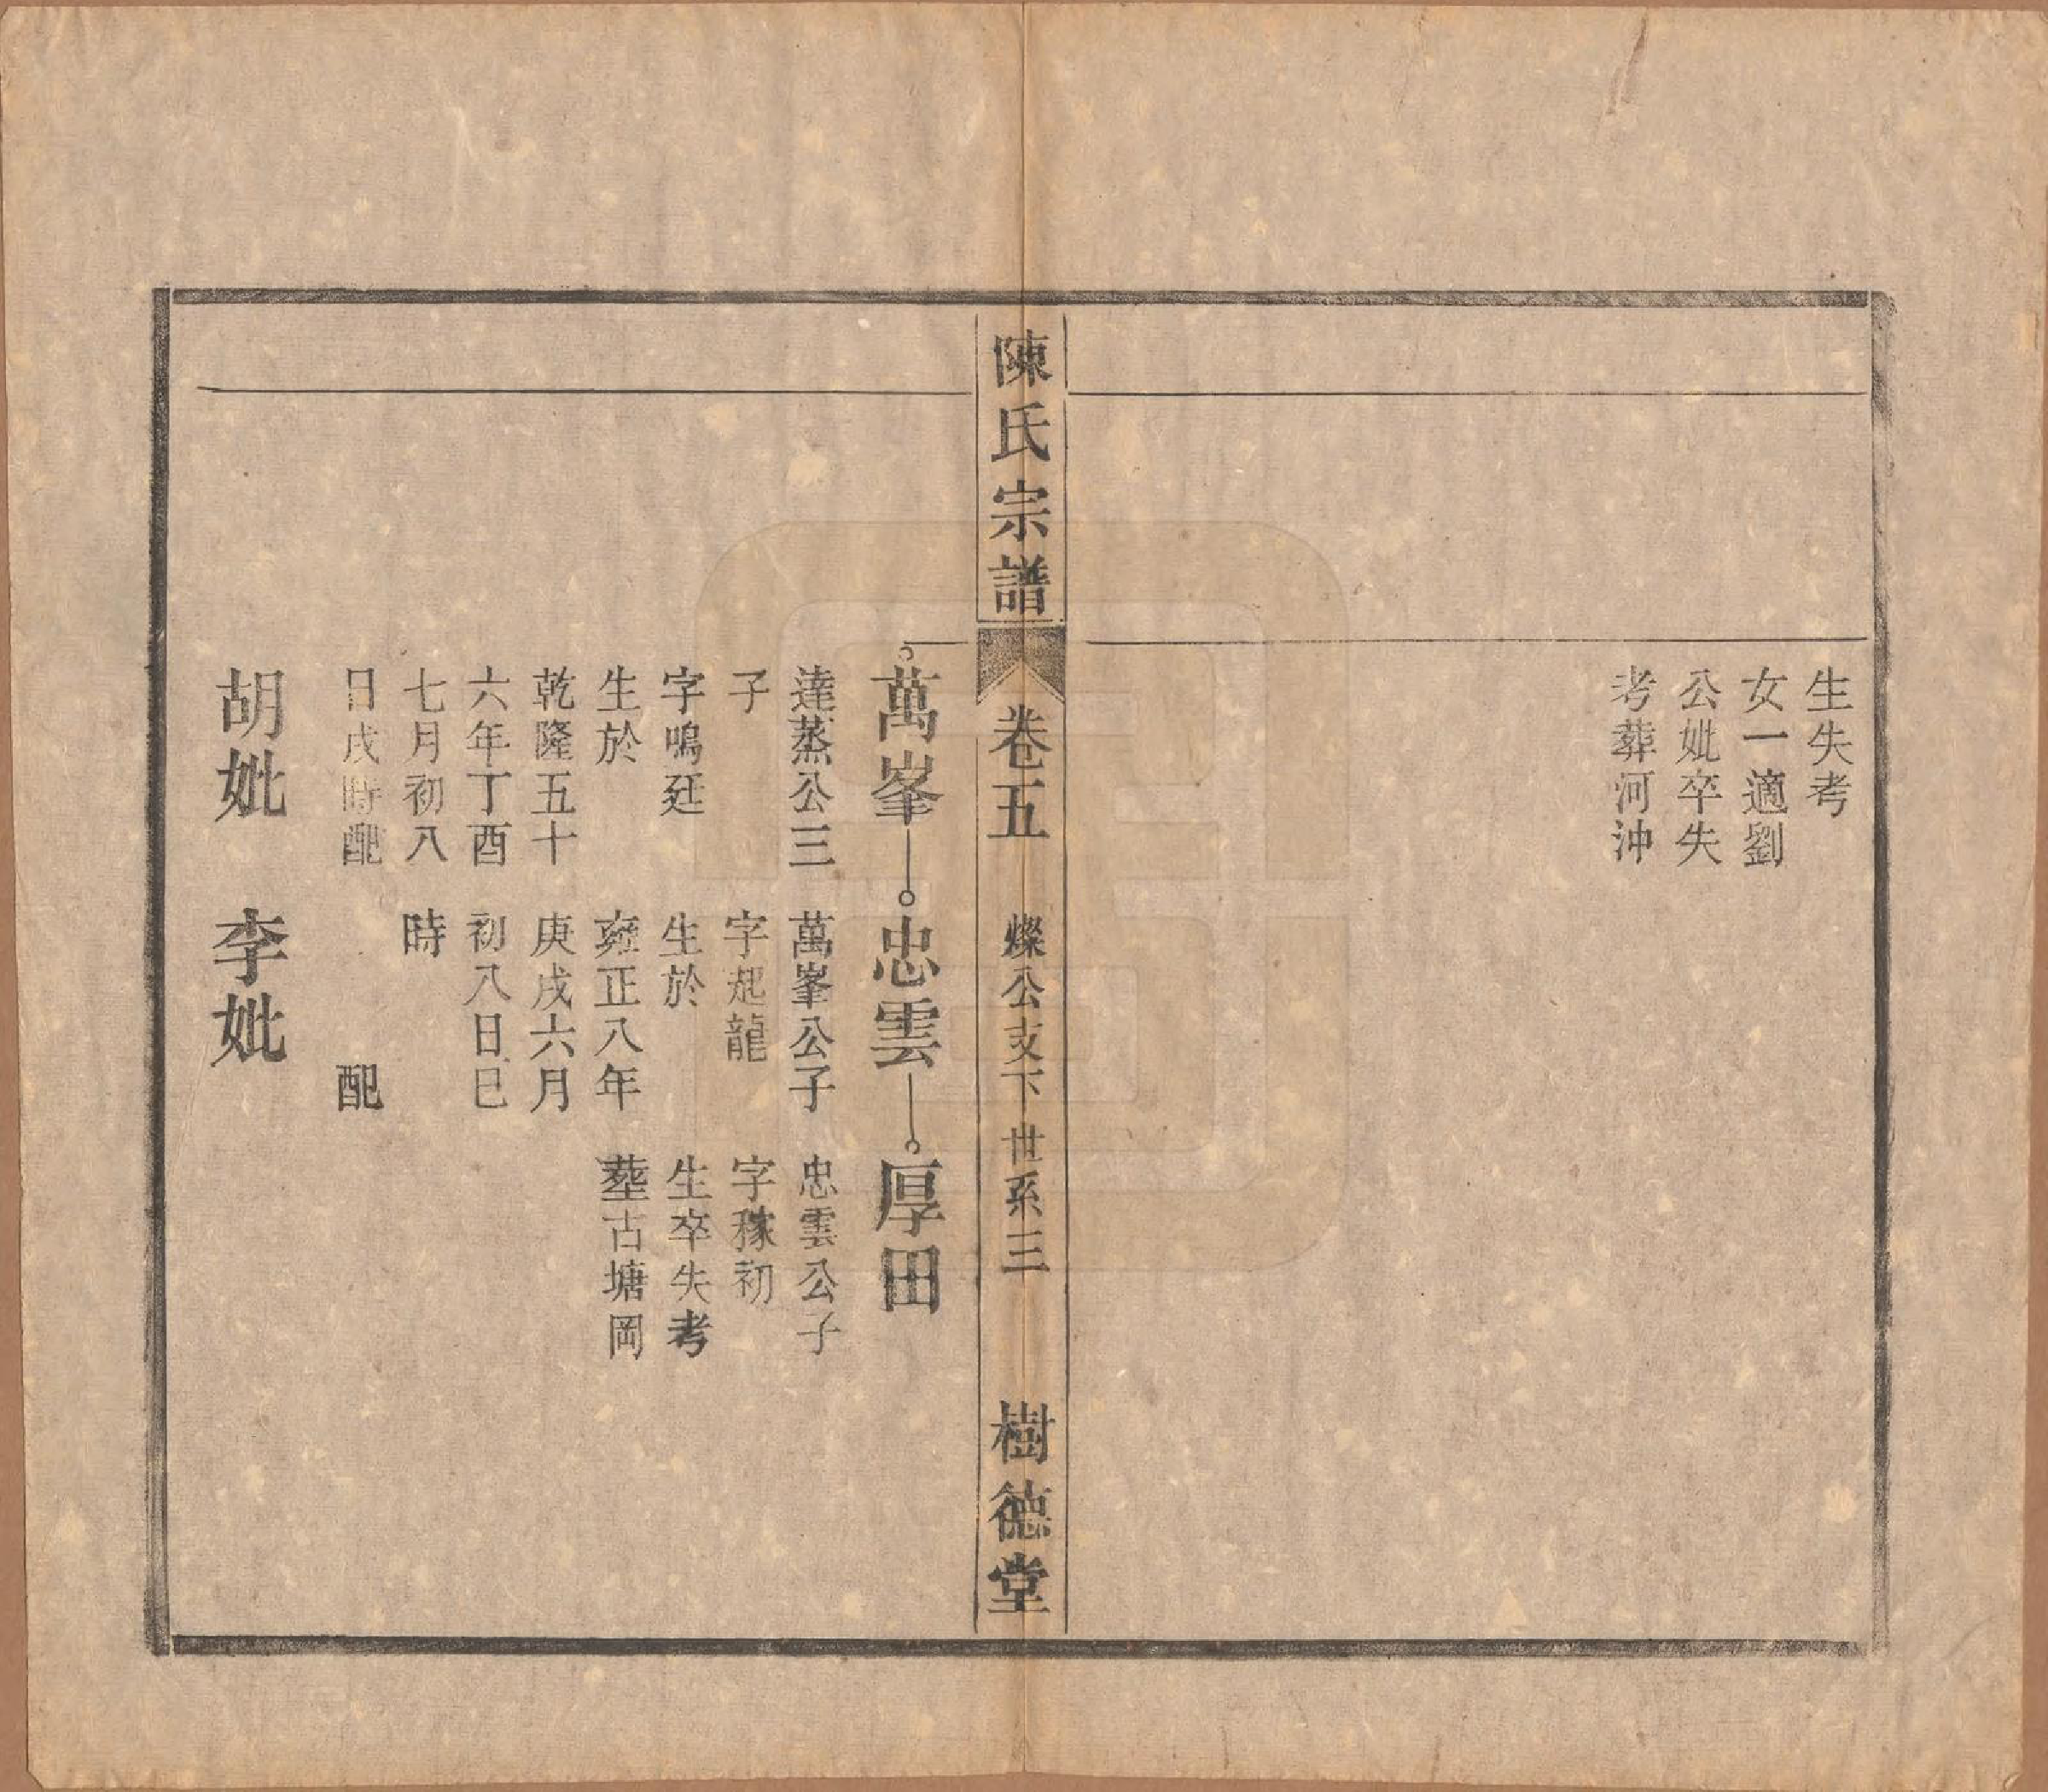 生失考
女一適劉
公妣卒失
考葬河沖
陳氏宗譜
卷五
燦公支下世系三
樹德堂
萬峯
達蒸公三
子
字鳴廷
生於
乾隆五十
六年丁酉
七月初八
日戌時配
胡妣
忠雲
萬峯公子
字起龍
生於
雍正八年
庚戌六月
初八日巳
時
配
李妣
厚田
忠雲公子
字稼初
生卒失考
塟古塘岡